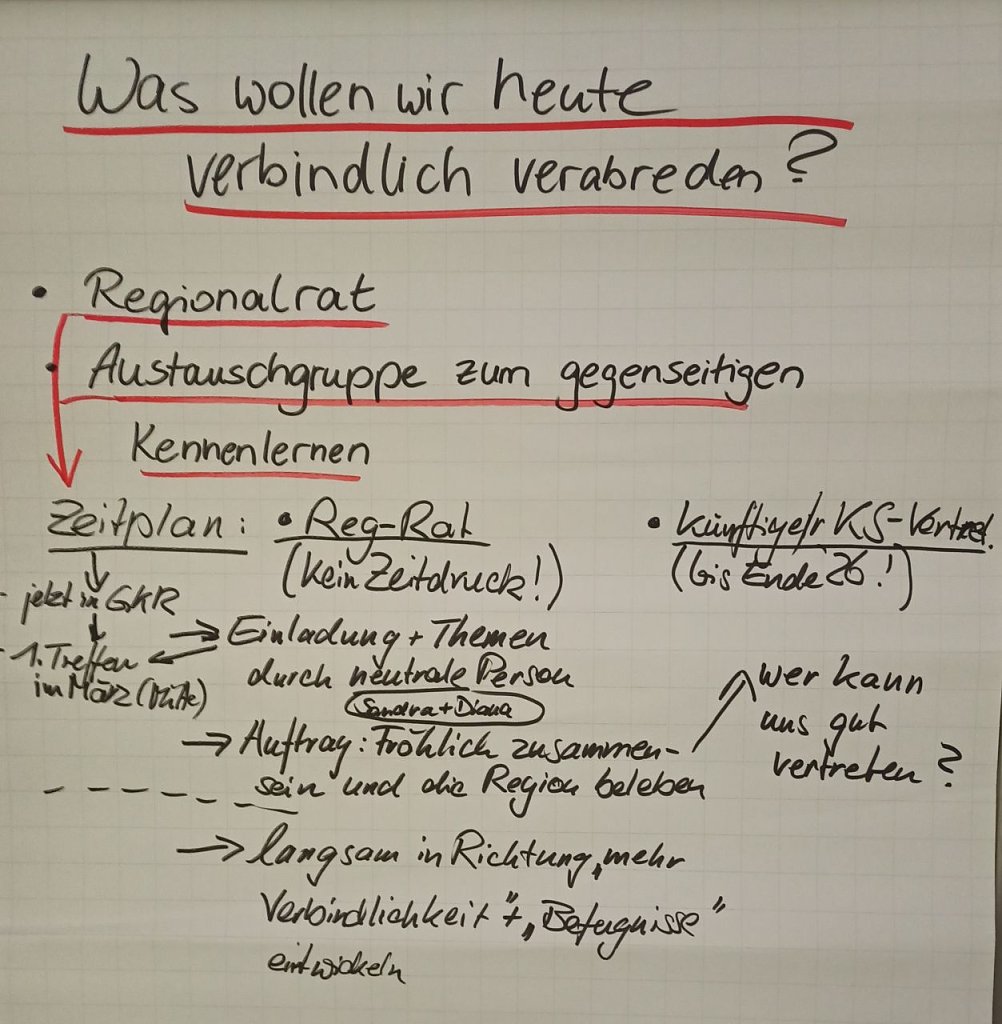 Was wollen wir heute
verbindlich verabreden?
• Regionalrat
• Austauschgruppe zum gegenseitigen
Kennenlernen
Zeitplan: • Reg-Rat
(kein Zeitdruck!)
• künftige/r KS-Vertret.
(bis Ende 26!)
- jetzt in GKR
- 1. Treffen
im März (Mitte)
→ Einladung + Themen
durch neutrale Person
Sandra + Diana
→ Auftrag: Fröhlich zusammen-
sein und die Region beleben
wer kann
uns gut
vertreten?
→ langsam in Richtung „mehr
Verbindlichkeit" + „Befugnisse"
entwickeln